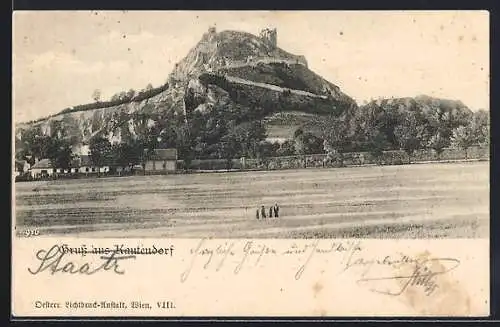 926
Gruß aus Kautendorf
Staatz
Herzliche Grüße und Handküsse
Oesterr. Lichtdruck-Anstalt, Wien, VIII.